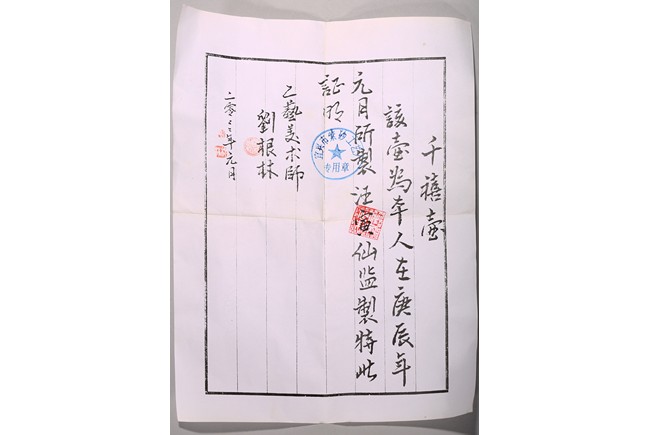 千禧壺
該壺為本人在庚辰年
元月所製汪寅仙监製特此
証明
工藝美术師
劉根林
二零零二年元月
专用章